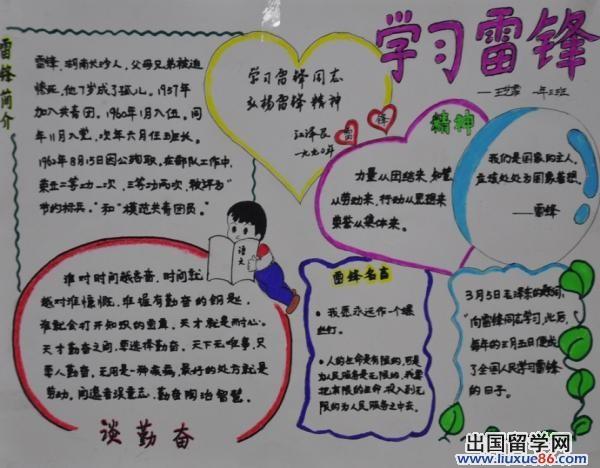 学习雷锋
一年三班
雷锋简介
雷锋，湖南长沙人，父母兄弟被迫
惨死，他7岁成了孤儿。1957年
加入共青团。1960年1月入伍。同
年11月入党，次年六月任班长。
1962年8月15日因公殉职，在部队工作中，
荣立二等功一次，三等功两次，被评为“
节约标兵，”和“模范共青团员。”
学习雷锋同志
弘扬雷锋精神
江泽民
一九九〇年
雷
锋
精神
力量从团结来，智慧
从劳动来，行动从思想来
荣誉从集体来。
我们是国家的主人，
应该处处为国家着想。
——雷锋
语文
谁对时间越吝啬，时间就
越对谁慷慨，谁握有勤奋的钥匙，
谁就会打开知识的宝库，天才就是耐心。
天才勤奋之间，要选择勤奋。天下无难事，只
要人勤奋。无用是一种疾病，最好的处方就是
劳动。闲逸者没意志，勤奋陶冶智慧。
谈勤奋
雷锋名言
• 我愿永远作一个螺
丝钉。
• 人的生命是有限的，可是
为人民服务是无限的，我要
把有限的生命，投入到无
限的为人民服务之中去。
3月5日毛泽东的题词，
“向雷锋同志学习，此后，
每年的三月五日便成
了全国人民学习雷锋
的日子。
出国留学网
www.liuxue86.com